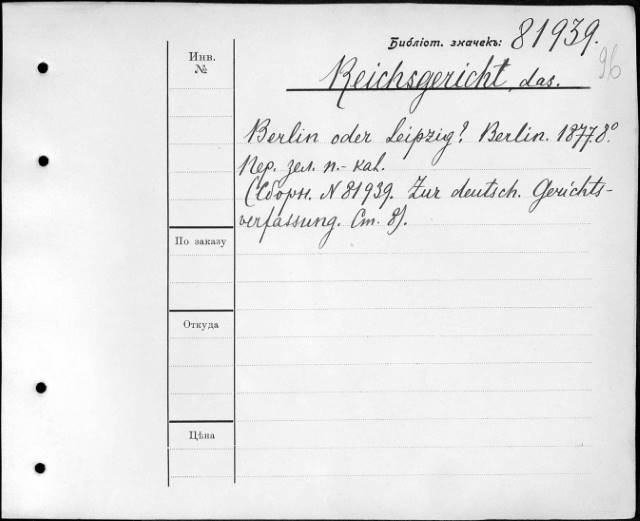 Библіот. значекъ: 81939.
96
Инв.
№
Reichsgericht, das.
Berlin oder Leipzig? Berlin. 1877. 8°
Пер. зел. п.-кал.
(Сборн. N 81939. Zur deutsch. Gerichts-
verfassung. Ст. 8).
По заказу
Откуда
Цѣна